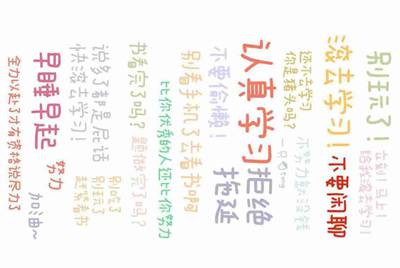 别玩了！
立刻！马上！
给我滚去学习！
滚去学习！
不要闲聊
还不去学习
你是猪头吗？
不努力就没钱
认真学习
拒绝
拖延
不要偷懒！
别看手机了去看书啊
比你优秀的人还比你努力
书看完了吗？
题做完了吗？
说多了都是屁话
快滚去学习！
别吃了
别玩了
赶紧看书
早睡早起
努力
加油~
全力以赴了才有资格说尽力了